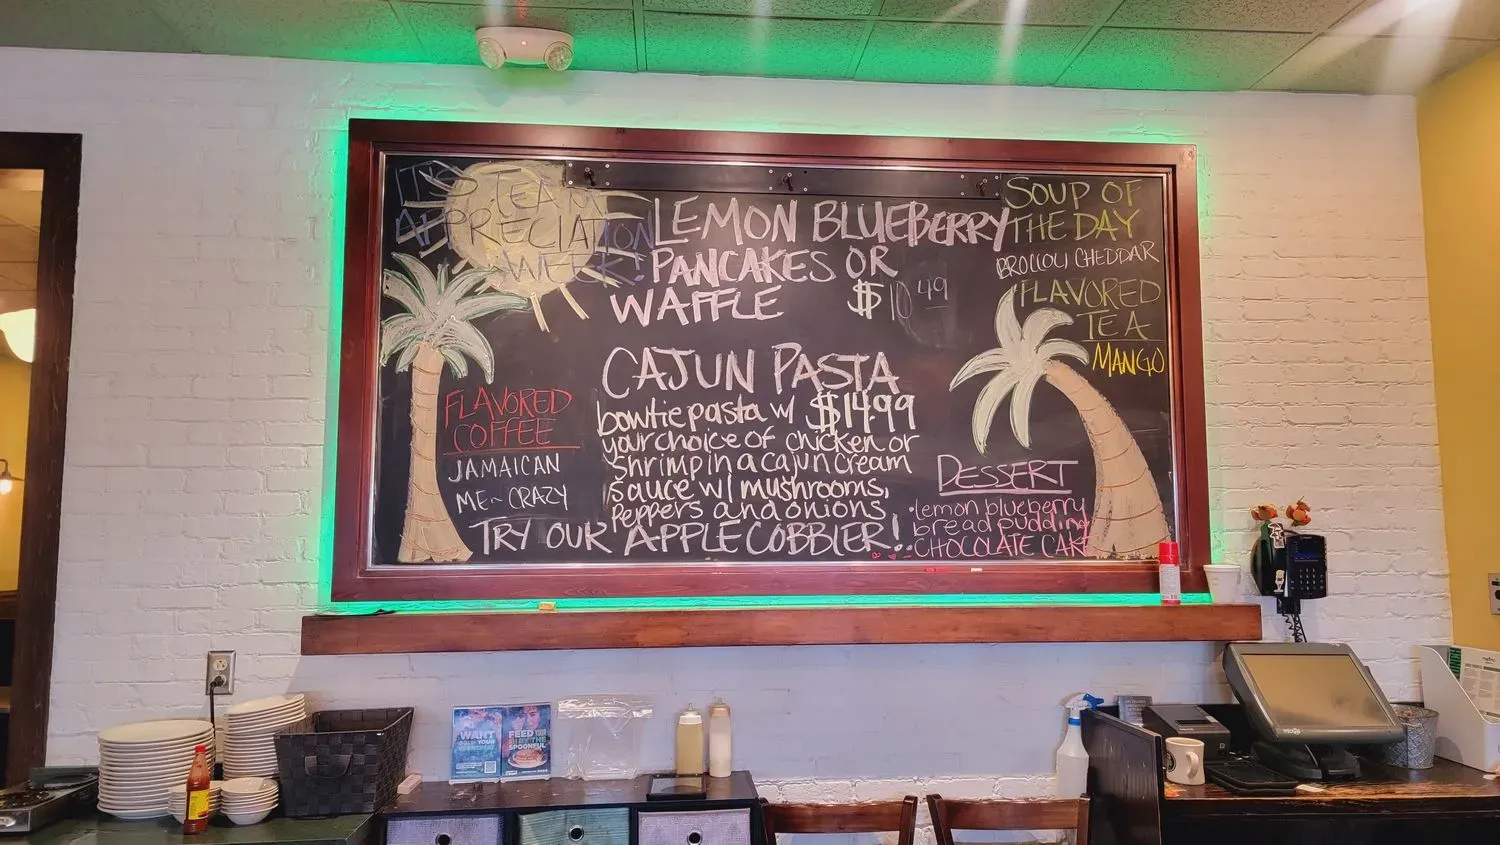 IT'S TEAM
APPRECIATION
WEEK!
LEMON BLUEBERRY
PANCAKES OR
WAFFLE $10.49
CAJUN PASTA
bowtie pasta w/ $14.99
your choice of chicken or
shrimp in a cajun cream
sauce w/ mushrooms,
peppers and onions
TRY OUR APPLE COBBLER!
FLAVORED
COFFEE
JAMAICAN
ME~CRAZY
SOUP OF
THE DAY
BROCCOLI CHEDDAR
FLAVORED
TEA
MANGO
DESSERT
·lemon blueberry
bread pudding
·CHOCOLATE CAKE
WANT
FEED YOUR
BY THE
SPOONFUL
micros